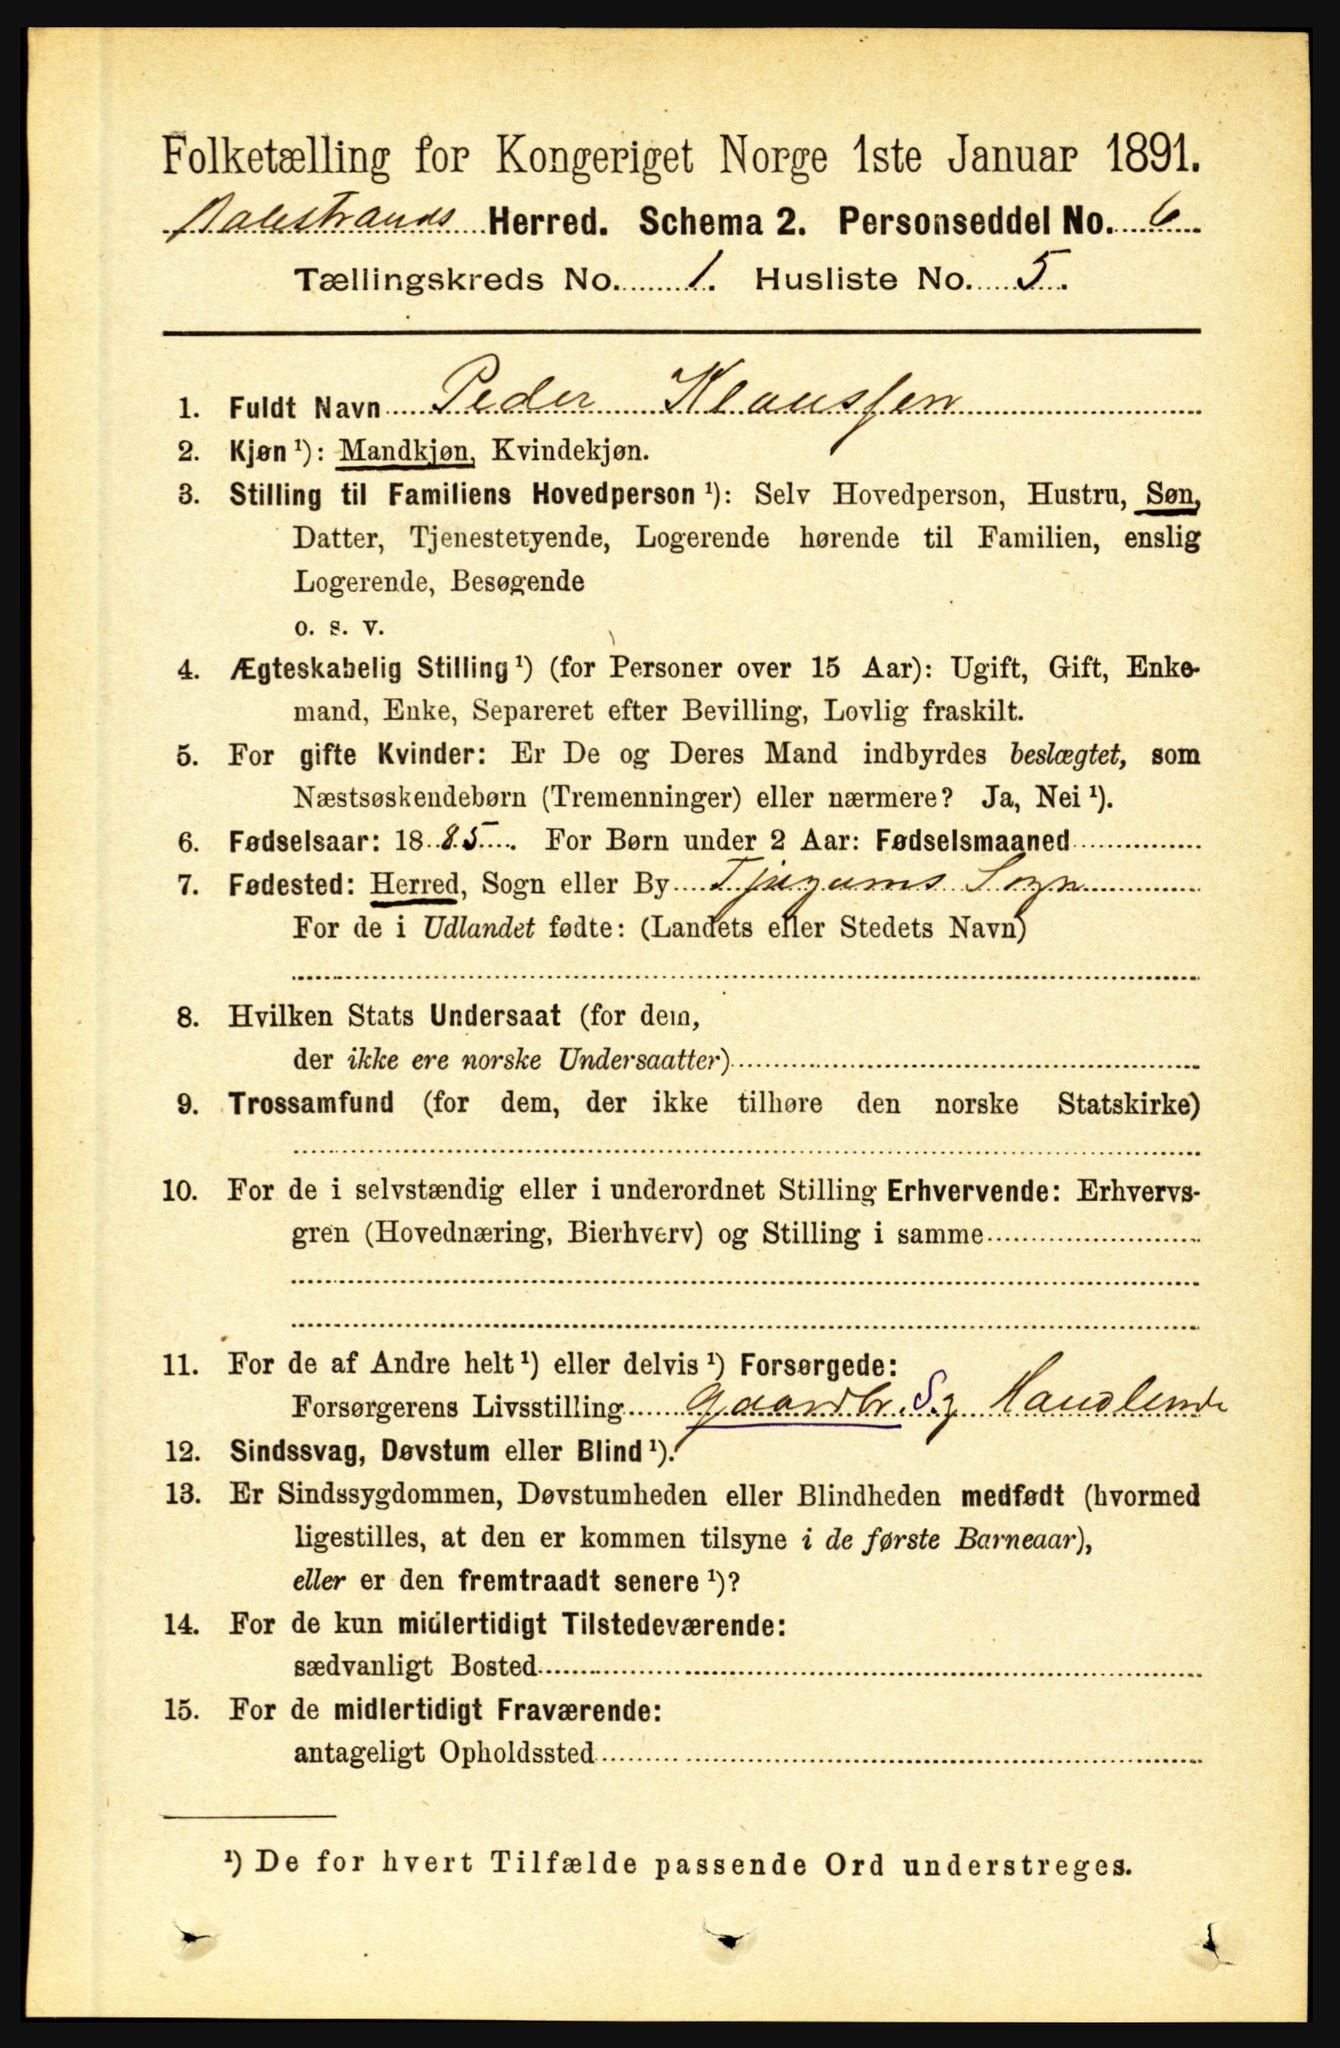 Folketælling for Kongeriget Norge 1ste Januar 1891.
Balestrands Herred. Schema 2. Personseddel No. 6
Tællingskreds No. 1. Husliste No. 5.
1. Fuldt Navn Peder Klaussen
2. Kjøn ¹): Mandkjøn, Kvindekjøn.
3. Stilling til Familiens Hovedperson ¹): Selv Hovedperson, Hustru, Søn,
Datter, Tjenestetyende, Logerende hørende til Familien, enslig
Logerende, Besøgende
o. s. v.
4. Ægteskabelig Stilling ¹) (for Personer over 15 Aar): Ugift, Gift, Enke-
mand, Enke, Separeret efter Bevilling, Lovlig fraskilt.
5. For gifte Kvinder: Er De og Deres Mand indbyrdes beslægtet, som
Næstsøskendebørn (Tremenninger) eller nærmere? Ja, Nei ¹).
6. Fødselsaar: 1885. For Børn under 2 Aar: Fødselsmaaned
7. Fødested: Herred, Sogn eller By Tjugums Sogn
For de i Udlandet fødte: (Landets eller Stedets Navn)
8. Hvilken Stats Undersaat (for dem,
der ikke ere norske Undersaatter)
9. Trossamfund (for dem, der ikke tilhøre den norske Statskirke)
10. For de i selvstændig eller i underordnet Stilling Erhvervende: Erhvervs-
gren (Hovednæring, Bierhverv) og Stilling i samme
11. For de af Andre helt ¹) eller delvis ¹) Forsørgede:
Forsørgerens Livsstilling Gaardbr. S. Handlende
12. Sindssvag, Døvstum eller Blind ¹).
13. Er Sindssygdommen, Døvstumheden eller Blindheden medfødt (hvormed
ligestilles, at den er kommen tilsyne i de første Barneaar),
eller er den fremtraadt senere ¹)?
14. For de kun midlertidigt Tilstedeværende:
sædvanligt Bosted
15. For de midlertidigt Fraværende:
antageligt Opholdssted
¹) De for hvert Tilfælde passende Ord understreges.